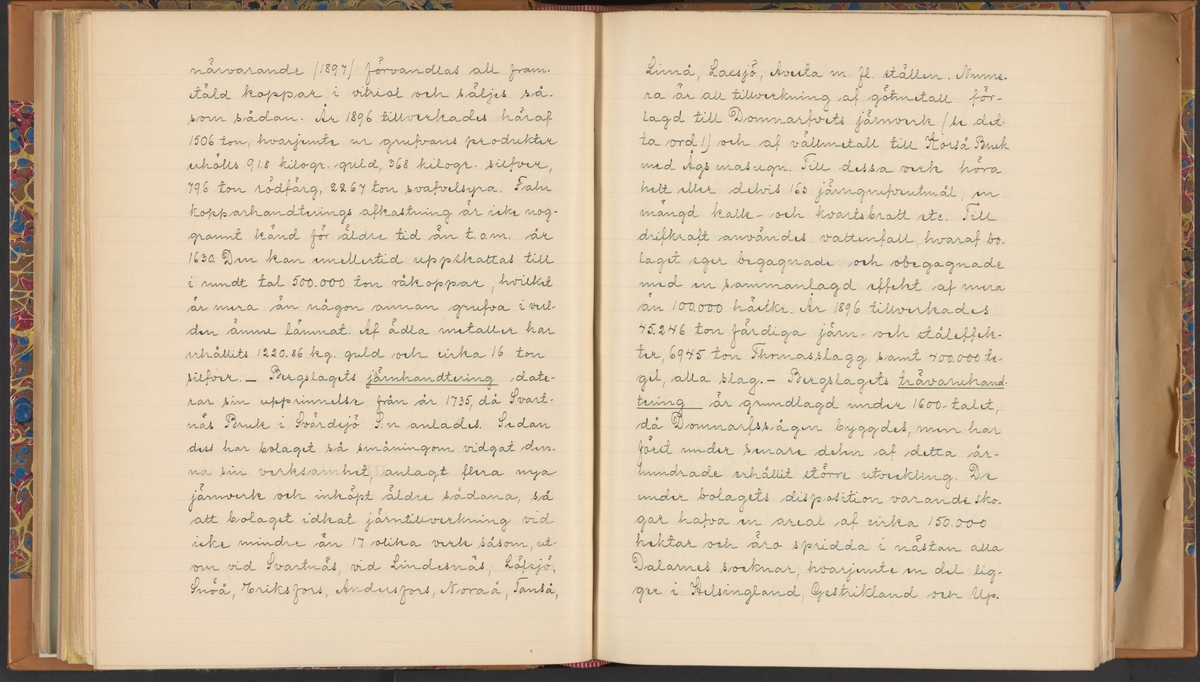 närvarande (1897) förvandlas all fram-
stäld koppar i vitriol och säljes så-
som sådan. År 1896 tillverkades häraf
1506 ton, hvarjemte ur grufvans produkter
erhölls 91.8 kilogr. guld, 368 kilogr. silfver,
796 ton rödfärg, 2267 ton svafvelsyra. Falu
kopparhandterings afkastning är icke nog-
grannt känd för äldre tid än t.o.m. år
1630. Den kan emellertid uppskattas till
i rundt tal 500.000 ton råkoppar, hvilket
är mera än någon annan grufva i verl-
den ännu lämnat. Af ädla metaller har
erhållits 1220.26 kg. guld och cirka 16 ton
silfver. — Bergslagets järnhandtering date-
rar sin upprinnelse från år 1735, då Svart-
näs Bruk i Svärdsjö S:n anlades. Sedan
dess har bolaget så småningom vidgat den-
na sin verksamhet, anlagt flera nya
järnverk och inköpt äldre sådana, så
att bolaget idkat järntillverkning vid
icke mindre än 17 olika verk såsom, ut-
om vid Svartnäs, vid Lindesnäs, Löfsjö,
Snöå, Eriksfors, Andersfors, Noraå, Tanså,
Linnå, Lacsjö, Avesta m. fl. ställen. Nume-
ra är all tillverkning af götmetall för-
lagd till Domnarfvets järnverk (se det-
ta ord!) och af vällmetall till Korså Bruk
med Ågs masugn. Till dessa verk höra
helt eller delvis 163 järngrufveutmål, en
mängd kalk- och kvartsbrott etc. Till
drifkraft användes vattenfall, hvaraf bo-
laget eger begagnade och obegagnade
med en sammanlagd effekt af mera
än 100.000 hästkr. År 1896 tillverkades
45.246 ton färdiga järn- och ståleffek-
ter, 6945 ton Thomasslagg samt 400.000 te-
gel, alla slag. — Bergslagets trävaruhand-
tering är grundlagd under 1600-talet,
då Domnarfssågen byggdes, men har
först under senare delen af detta år-
hundrade erhållit större utveckling. De
under bolagets disposition varande sko-
gar hafva en areal af cirka 150.000
hektar och äro spridda i nästan alla
Dalarnes socknar, hvarjemte en del lig-
ger i Helsingland, Gestrikland och Up-